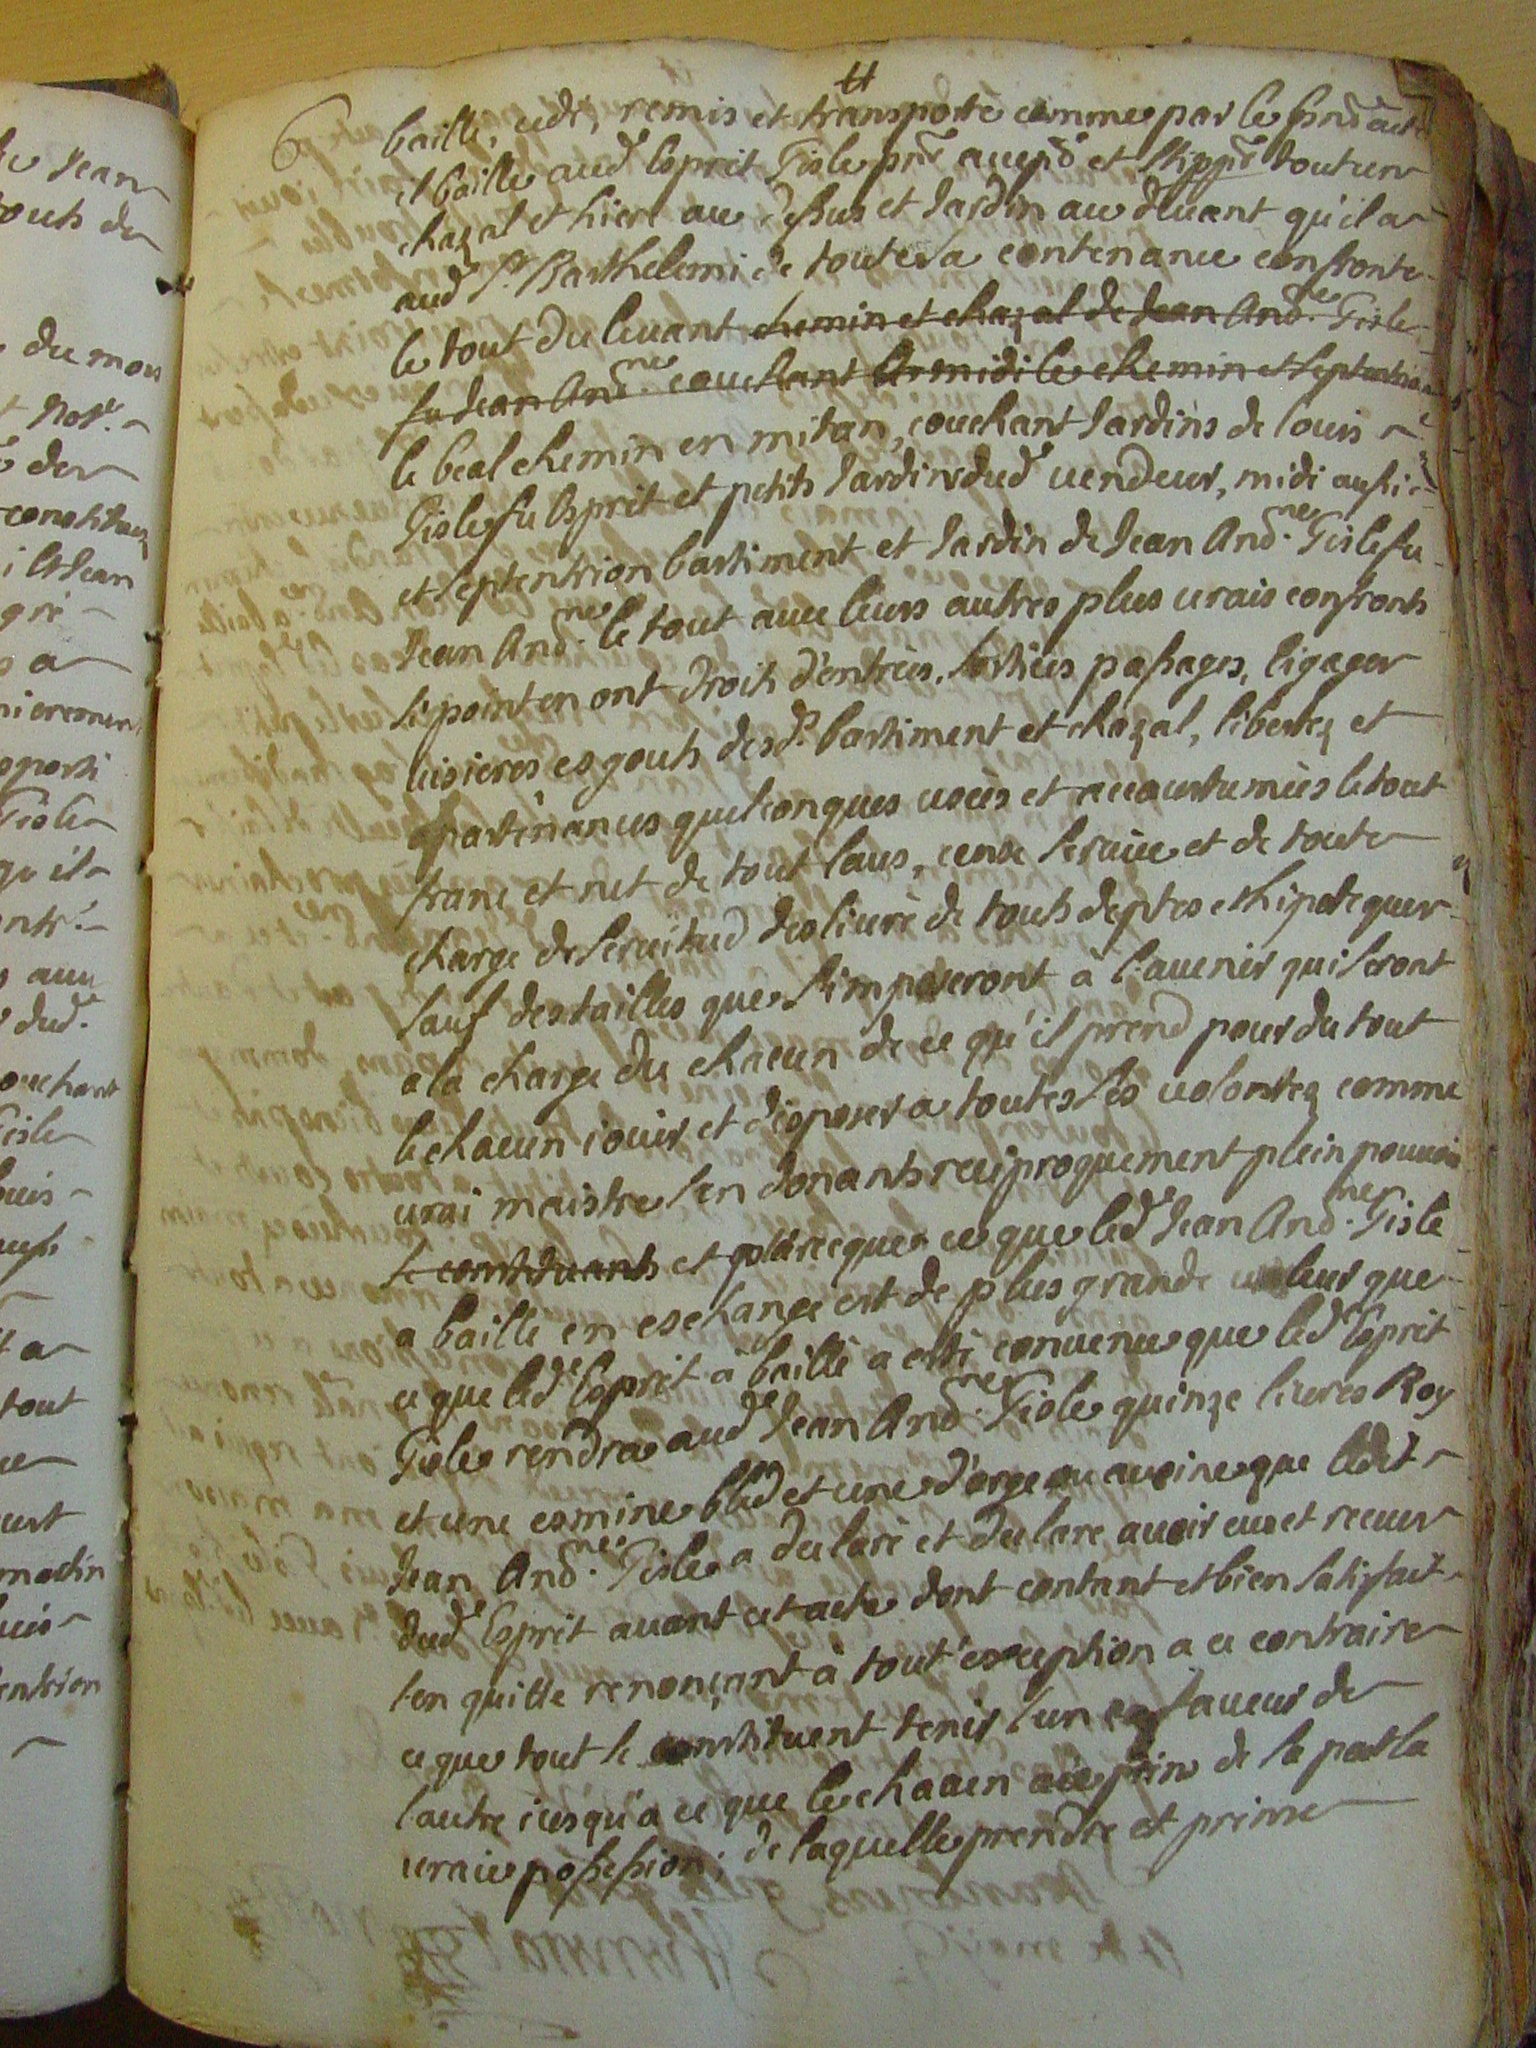 baillé, cedé, remis et transporté comme par le pnd acte
il baille aud Esprit Gisle pnt accepnt et stippnt tout un
chazal et hiere au dessus et Jardin au devant qu'il a
aud St Barthelemi de toute sa contenance confronte
le tout du levant chemin et chazal de Jean And.ne Gisle
fu Jean And.ne couchant le midi le chemin et septentrion
le beal chemin en mitan, couchant Jardins de louis
Gisle fu Esprit et petits Jardins dud vendeur, midi aussi
et septentrion bastiment et Jardin de Jean And.ne Gisle fu
Jean And.ne le tout avec leurs autres plus vrais confronts
si point en ont droits d'entrées, sorties passages, ligages
visieres esgouts desd. bastiment et chazal, libertez et
apartenances quelconques usées et accoustumées le tout
franc et net de tout laus, cense service et de toute
charge de servitud desliuré de touts deptes et hipoteques
sauf des tailles que s'imposeront à l'avenir qui seront
a la charge du chacun de ce qu'il prend pour du tout
le chacun iouir et disposer a toutes ses volontez comme
vrai maistre s'en donants reciproquement plein pouvoir
se constituants et parceque ce que led Jean And.ne Gisle
a baille en eschange est de plus grande valeur que
ce que led Esprit a baillé a esté convenu que led Esprit
Gisle rendra aud Jean And.ne Gisle quinze livres Roy
et une esmine bled et une d'orge ou avoine que ledit
Jean And.ne Gisle a declaré et declare avoir eu et receu
dud Esprit avant cet acte dont contant et bien satisfait
l'en quitte renonçant à tout'exception a ce contraire
ce que tout se constituent tenir l'un en faveur de
l'autre iusqu'a ce que le chacun aie prin de sa part la
vraie possession; de laquelle prendre et prinse